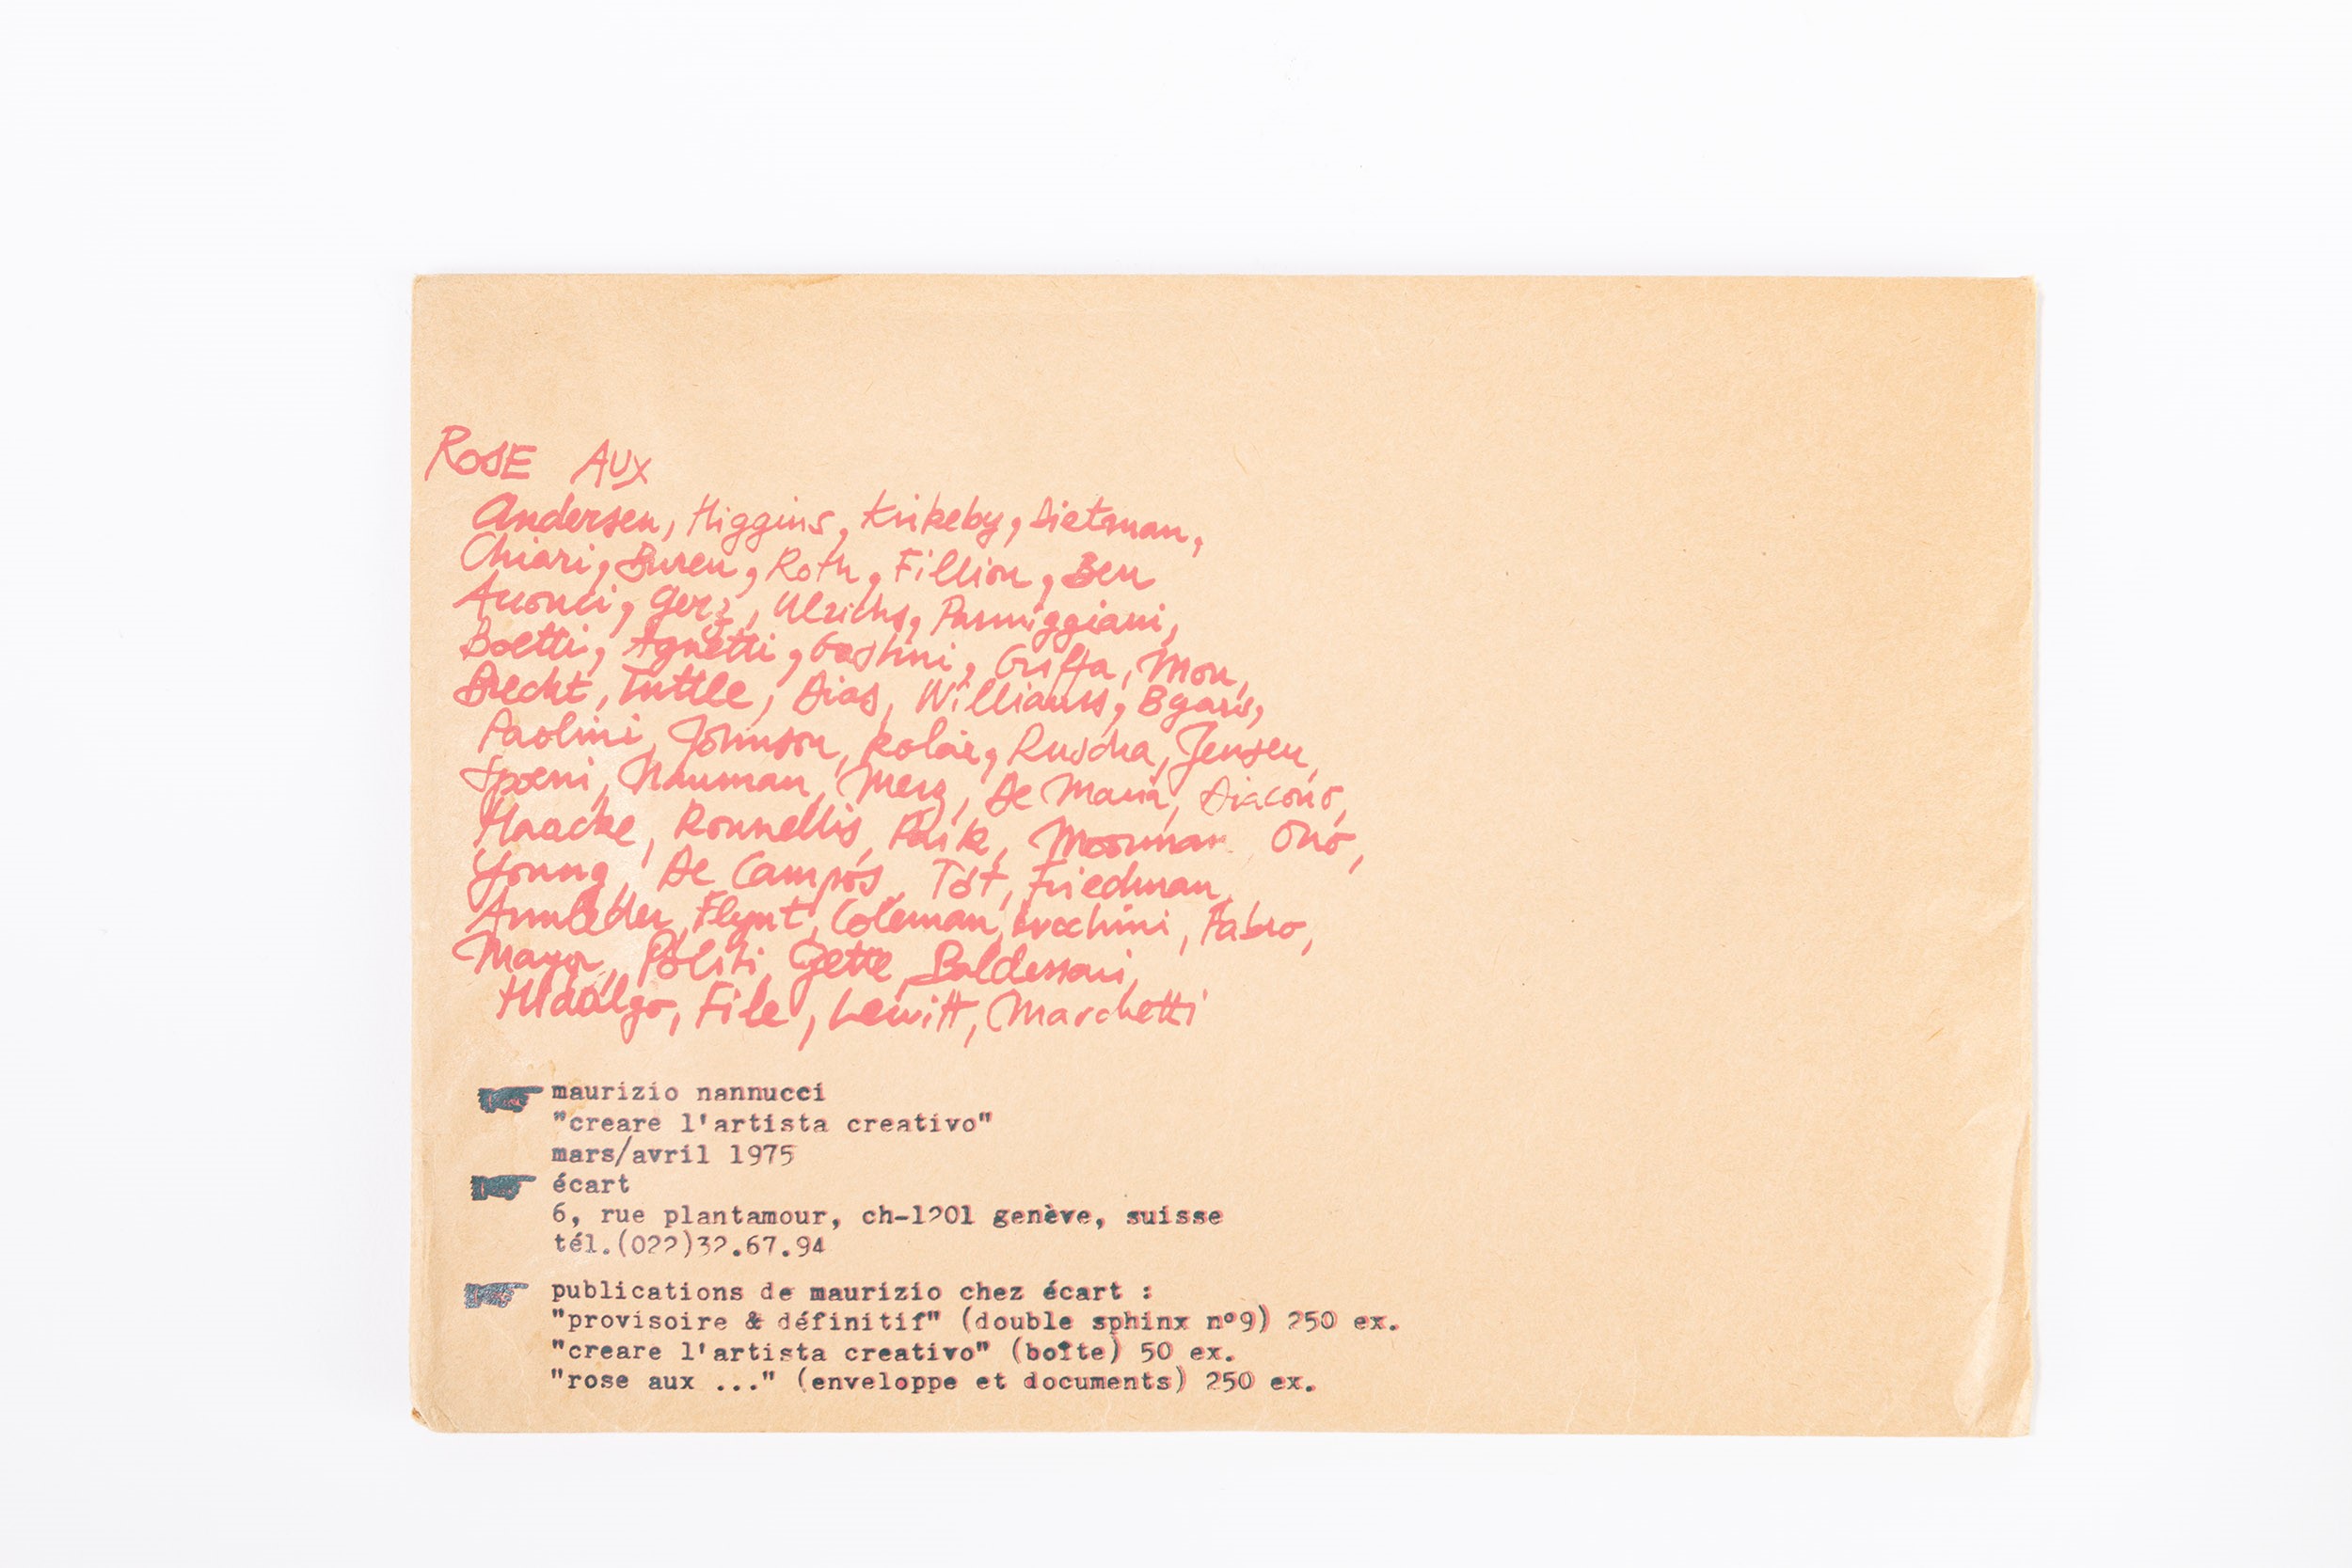 ROSE AUX
Andersen, Higgins, Kirkeby, Dietman,
Chiari, Buren, Roth, Fillion, Ben
Acconci, Gerz, Ulrichs, Parmiggiani,
Boetti, Agnetti, Gastini, Griffa, Mon,
Brecht, Tuttle, Dias, Williams, Bgars,
Paolini, Johnson, Kolar, Ruscha, Jensen,
Spoerri, Nauman, Merz, De Maria, Diacono,
Haacke, Kounellis, Paik, Moorman Ono,
Young, De Campos, Tót, Friedman,
Armleder, Flynt, Coleman, Lucchini, Fabro,
Mayor, Politi, Gette, Baldessari,
Hidalgo, File, Lewitt, Marchetti
maurizio nannucci
"creare l'artista creativo"
mars/avril 1975
écart
6, rue plantamour, ch-1201 genève, suisse
tél.(022)32.67.94
publications de maurizio chez écart :
"provisoire & définitif" (double sphinx nº9) 250 ex.
"creare l'artista creativo" (boîte) 50 ex.
"rose aux ..." (enveloppe et documents) 250 ex.